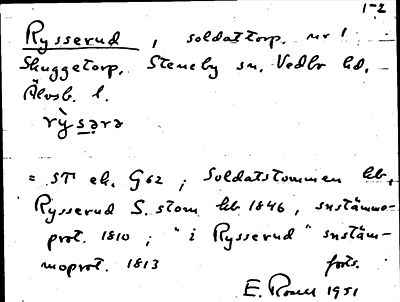 1-2
Rysserud, soldattorp. nr 1
Skuggetorp, Steneby sn, Vedbo hd,
Älvsb. l.
rỳsərə
= ST ek. G62; Soldatstommen hb,
Rysserud S. stom hb 1846, snstämmo-
prot. 1810; "i Rysserud" snstäm-
moprot. 1813 forts.
E. 1951